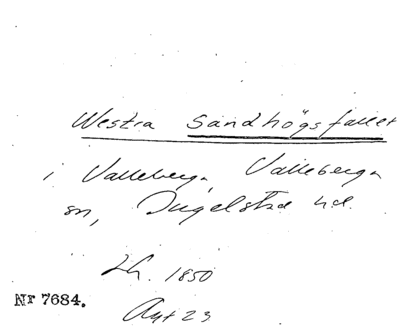 Westra Sandhögsfallet
i Valleberga, Valleberga
sn, Ingelstad hd.
Lh. 1850
Akt 23
Nr 7684.